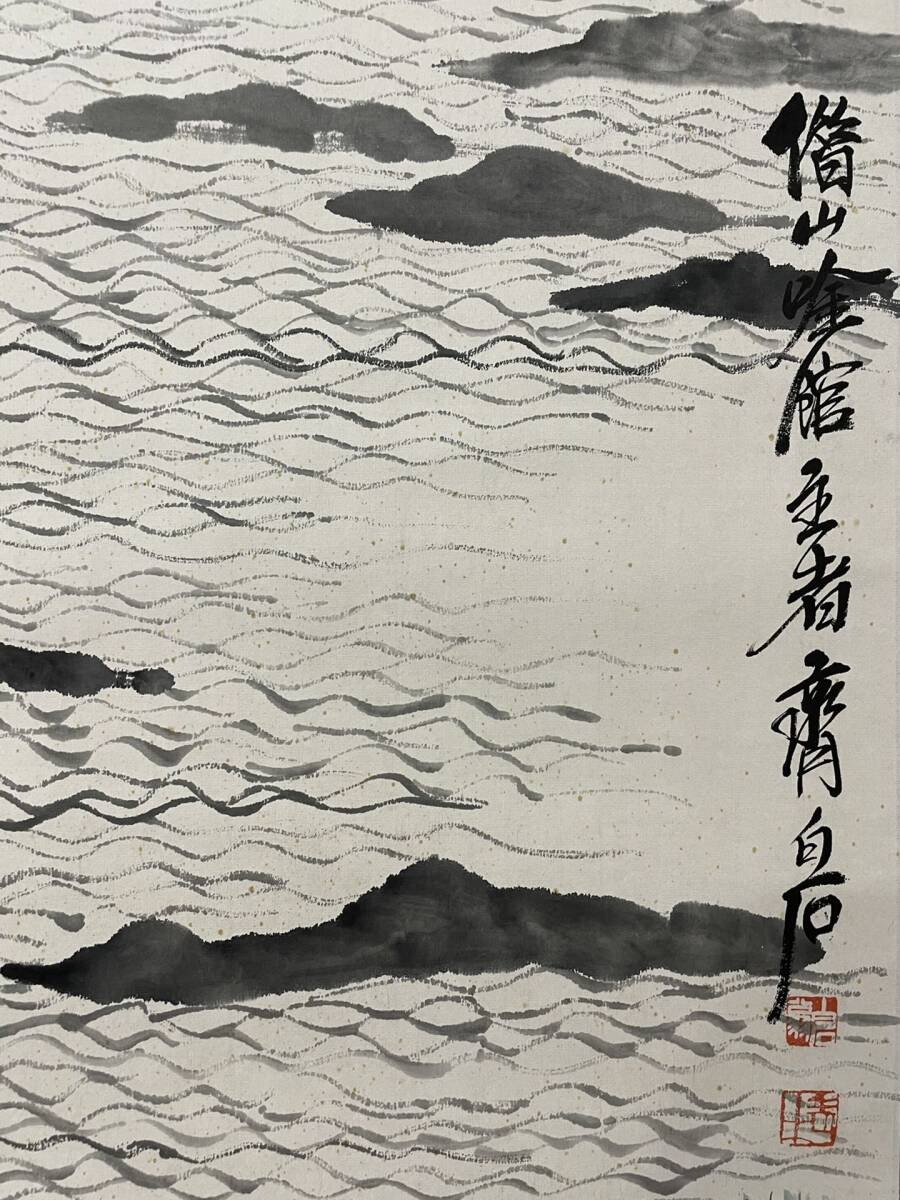 借山唫館主者齊白石